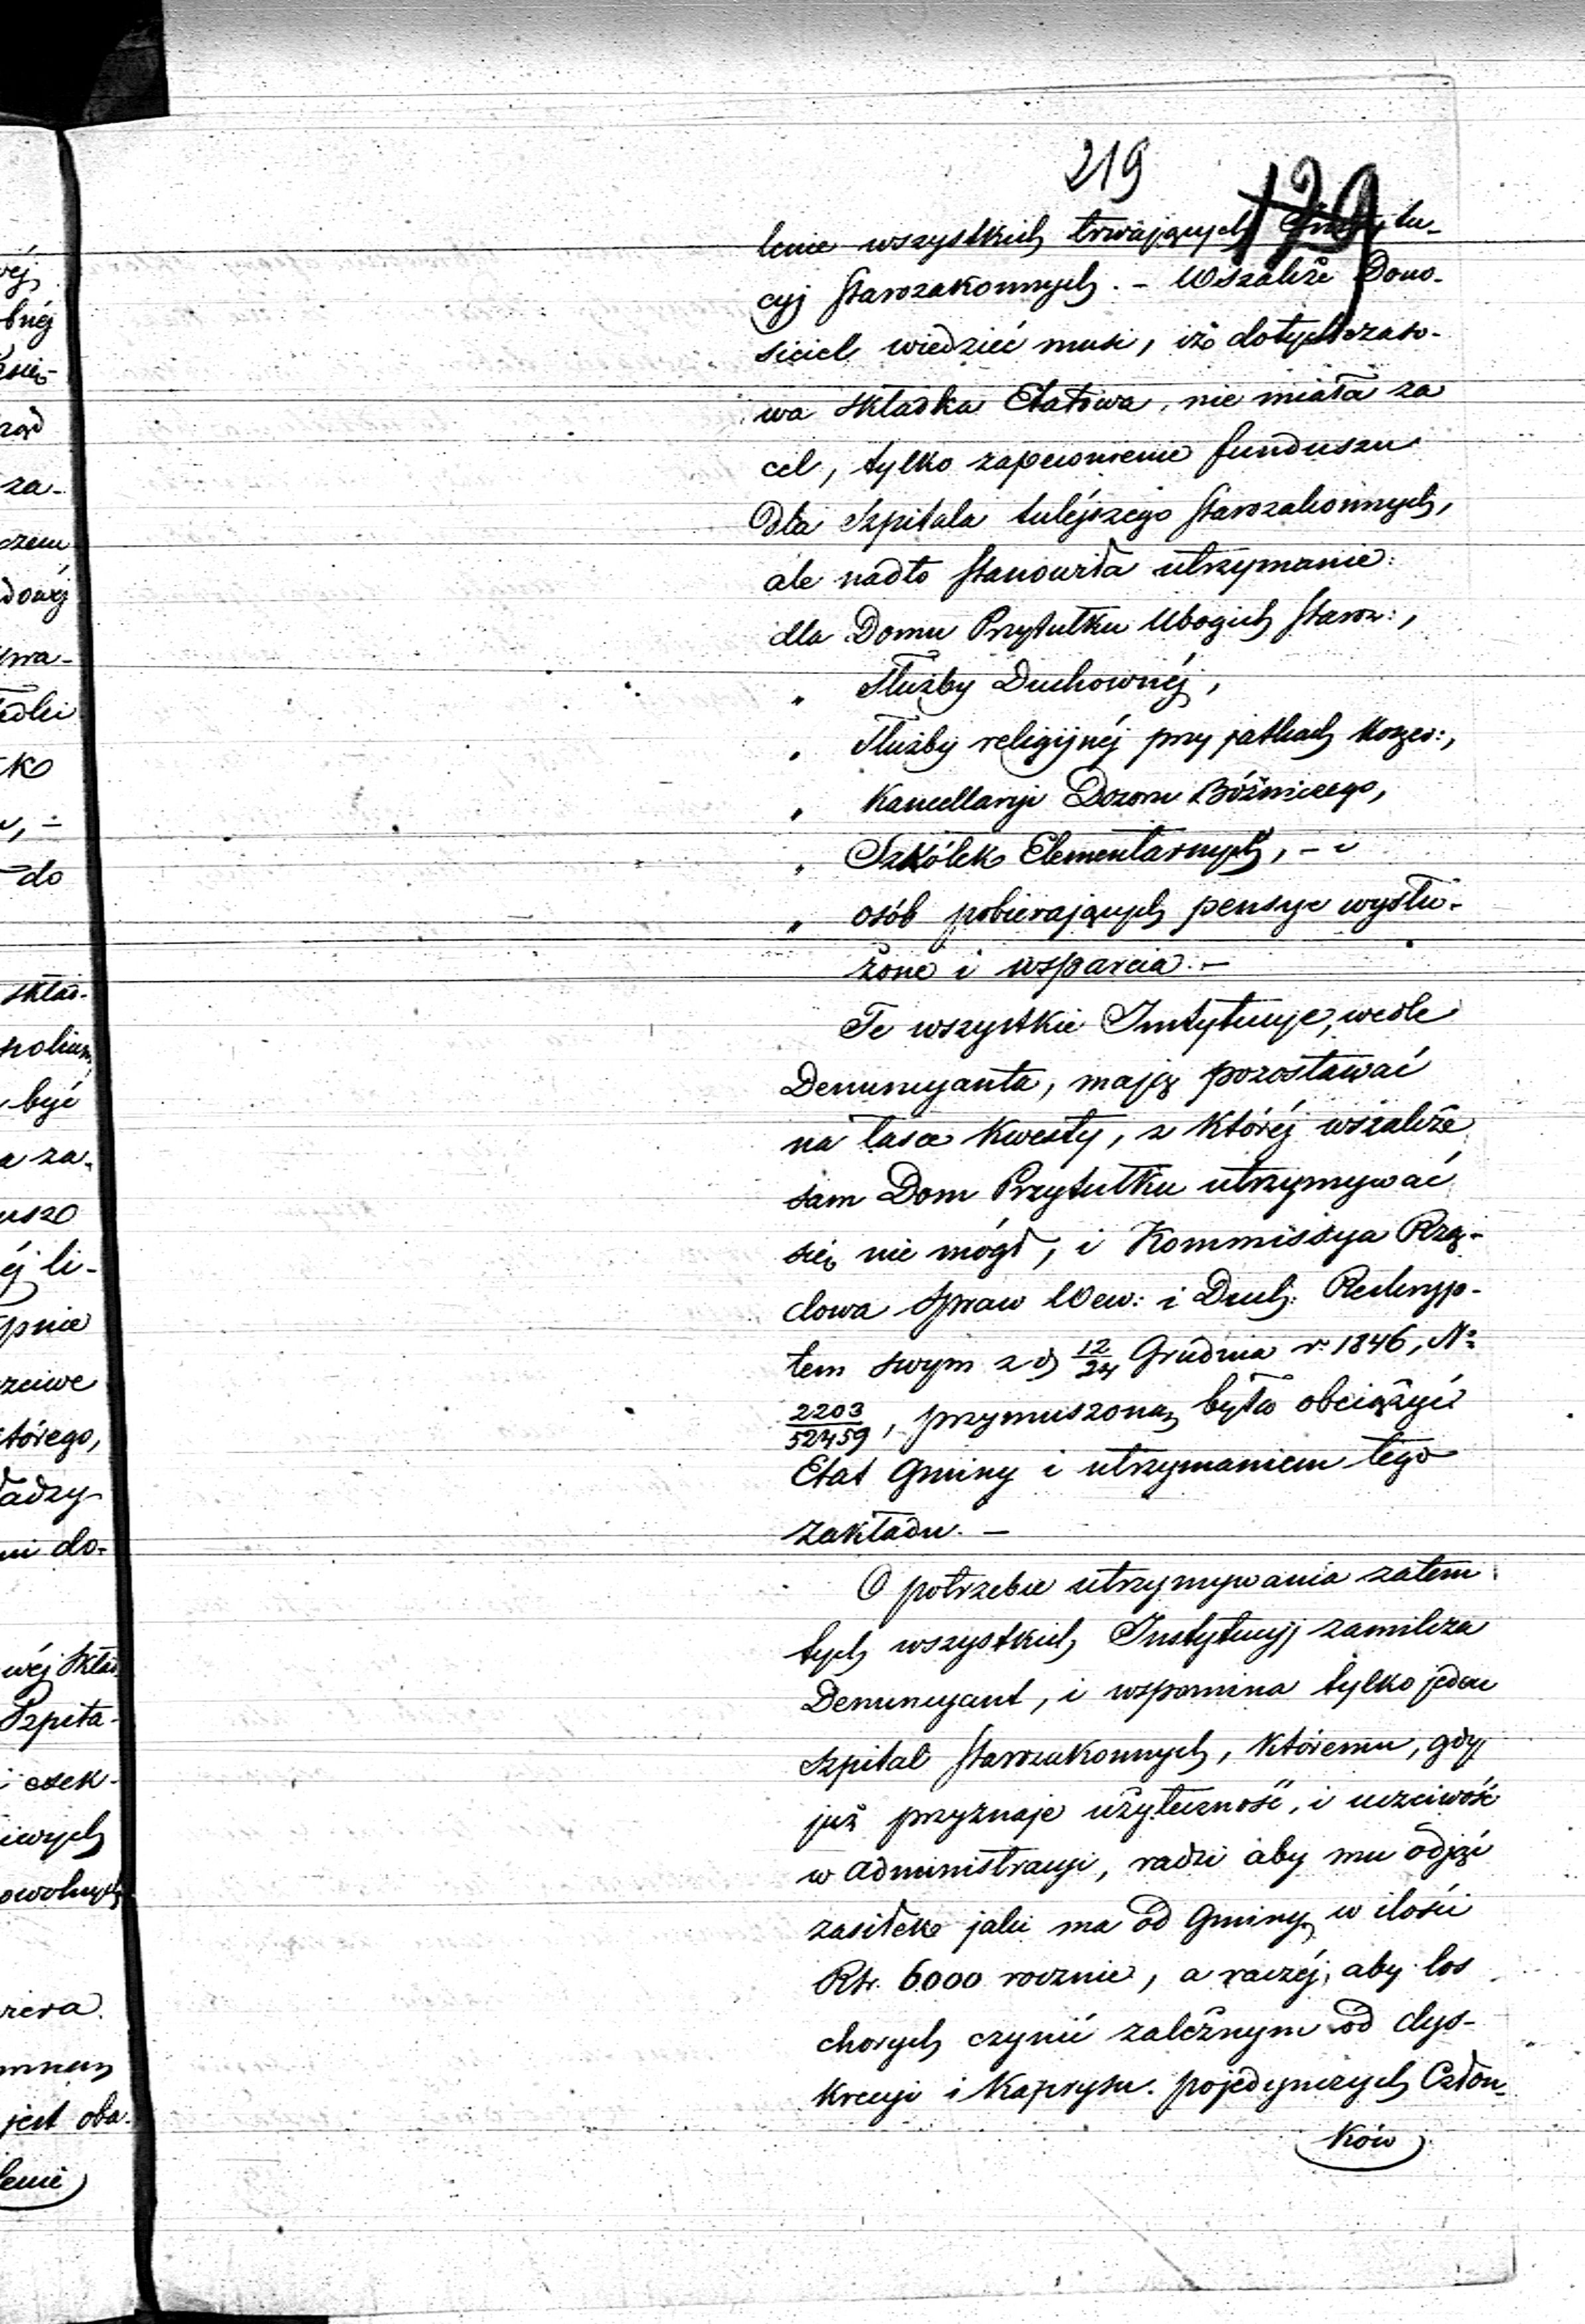 219
129
lenie wszystkich trwających Instytu-
cyj Starozakonnych. – Wszakże Dono-
siciel wiedzieć musi, iż dotychczaso-
wa składka Etatowa, nie miała za
cel, tylko zapewnienie funduszu
dla Szpitala tutéjszego Starozakonnych,
ale nadto stanowiła utrzymanie:
dla Domu Przytułku Ubogich Staroz:,
" Służby Duchownéj,
" Służby religijnéj przy jatkach Koszer:,
" Kancellaryi Dozoru Bóżniczego,
" Szkółek Elementarnych, – i
" osób pobierających pensye wysłu-
żone i wsparcia. –
Te wszystkie Instytucye, wedle
Denuncyanta, mają pozostawać
na łasce Kwesty, z któréj wszakże
sam Dom Przytułku utrzymywać
się nie mógł, i Kommissya Rzą-
dowa Spraw Wew: i Duch: Reskryp-
tem swym z d 12/24 Grudnia r. 1846, Nº
2203/52459, przymuszoną była obciążyć
Etat Gminy i utrzymaniem tego
zakładu. –
O potrzebie utrzymywania zatem
tych wszystkich Instytucyj zamilcza
Denuncyant, i wspomina tylko jeden
Szpital Starozakonnych, któremu, gdy
już przyznaje użyteczność, i uczciwość
w Administracyi, radzi aby mu odjąć
zasiłek jaki ma od Gminy w ilości
Rsr. 6000 rocznie, a raczéj, aby los
chorych czynić zależnym od dys-
krecyi i kaprysu pojedynczych Człon-
ków